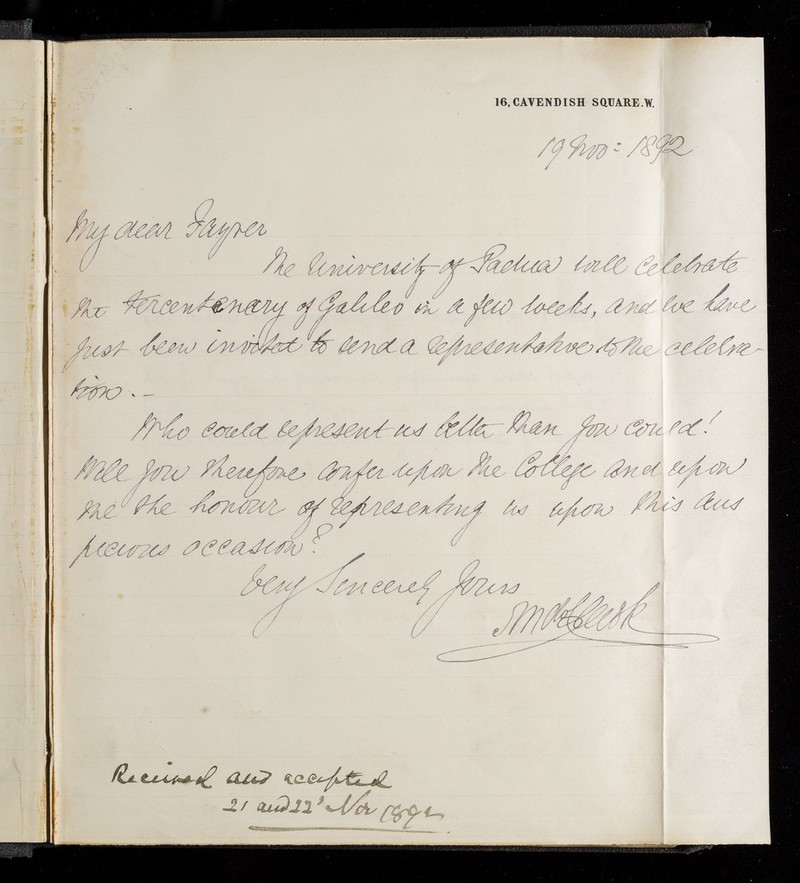 16, CAVENDISH SQUARE. W.
19 Nov: 1892
My dear Fayrer
The University of Padua will celebrate
the tercentenary of Galileo in a few weeks, and we have
just been invited to send a representative to the celebra-
tion. -
Who could represent us better than you could!
Will you therefore confer upon the College and upon
me the honour of representing us upon this aus
picious occasion?
Very Sincerely Yours
Received and accepted
21 and 22d Nov 1892